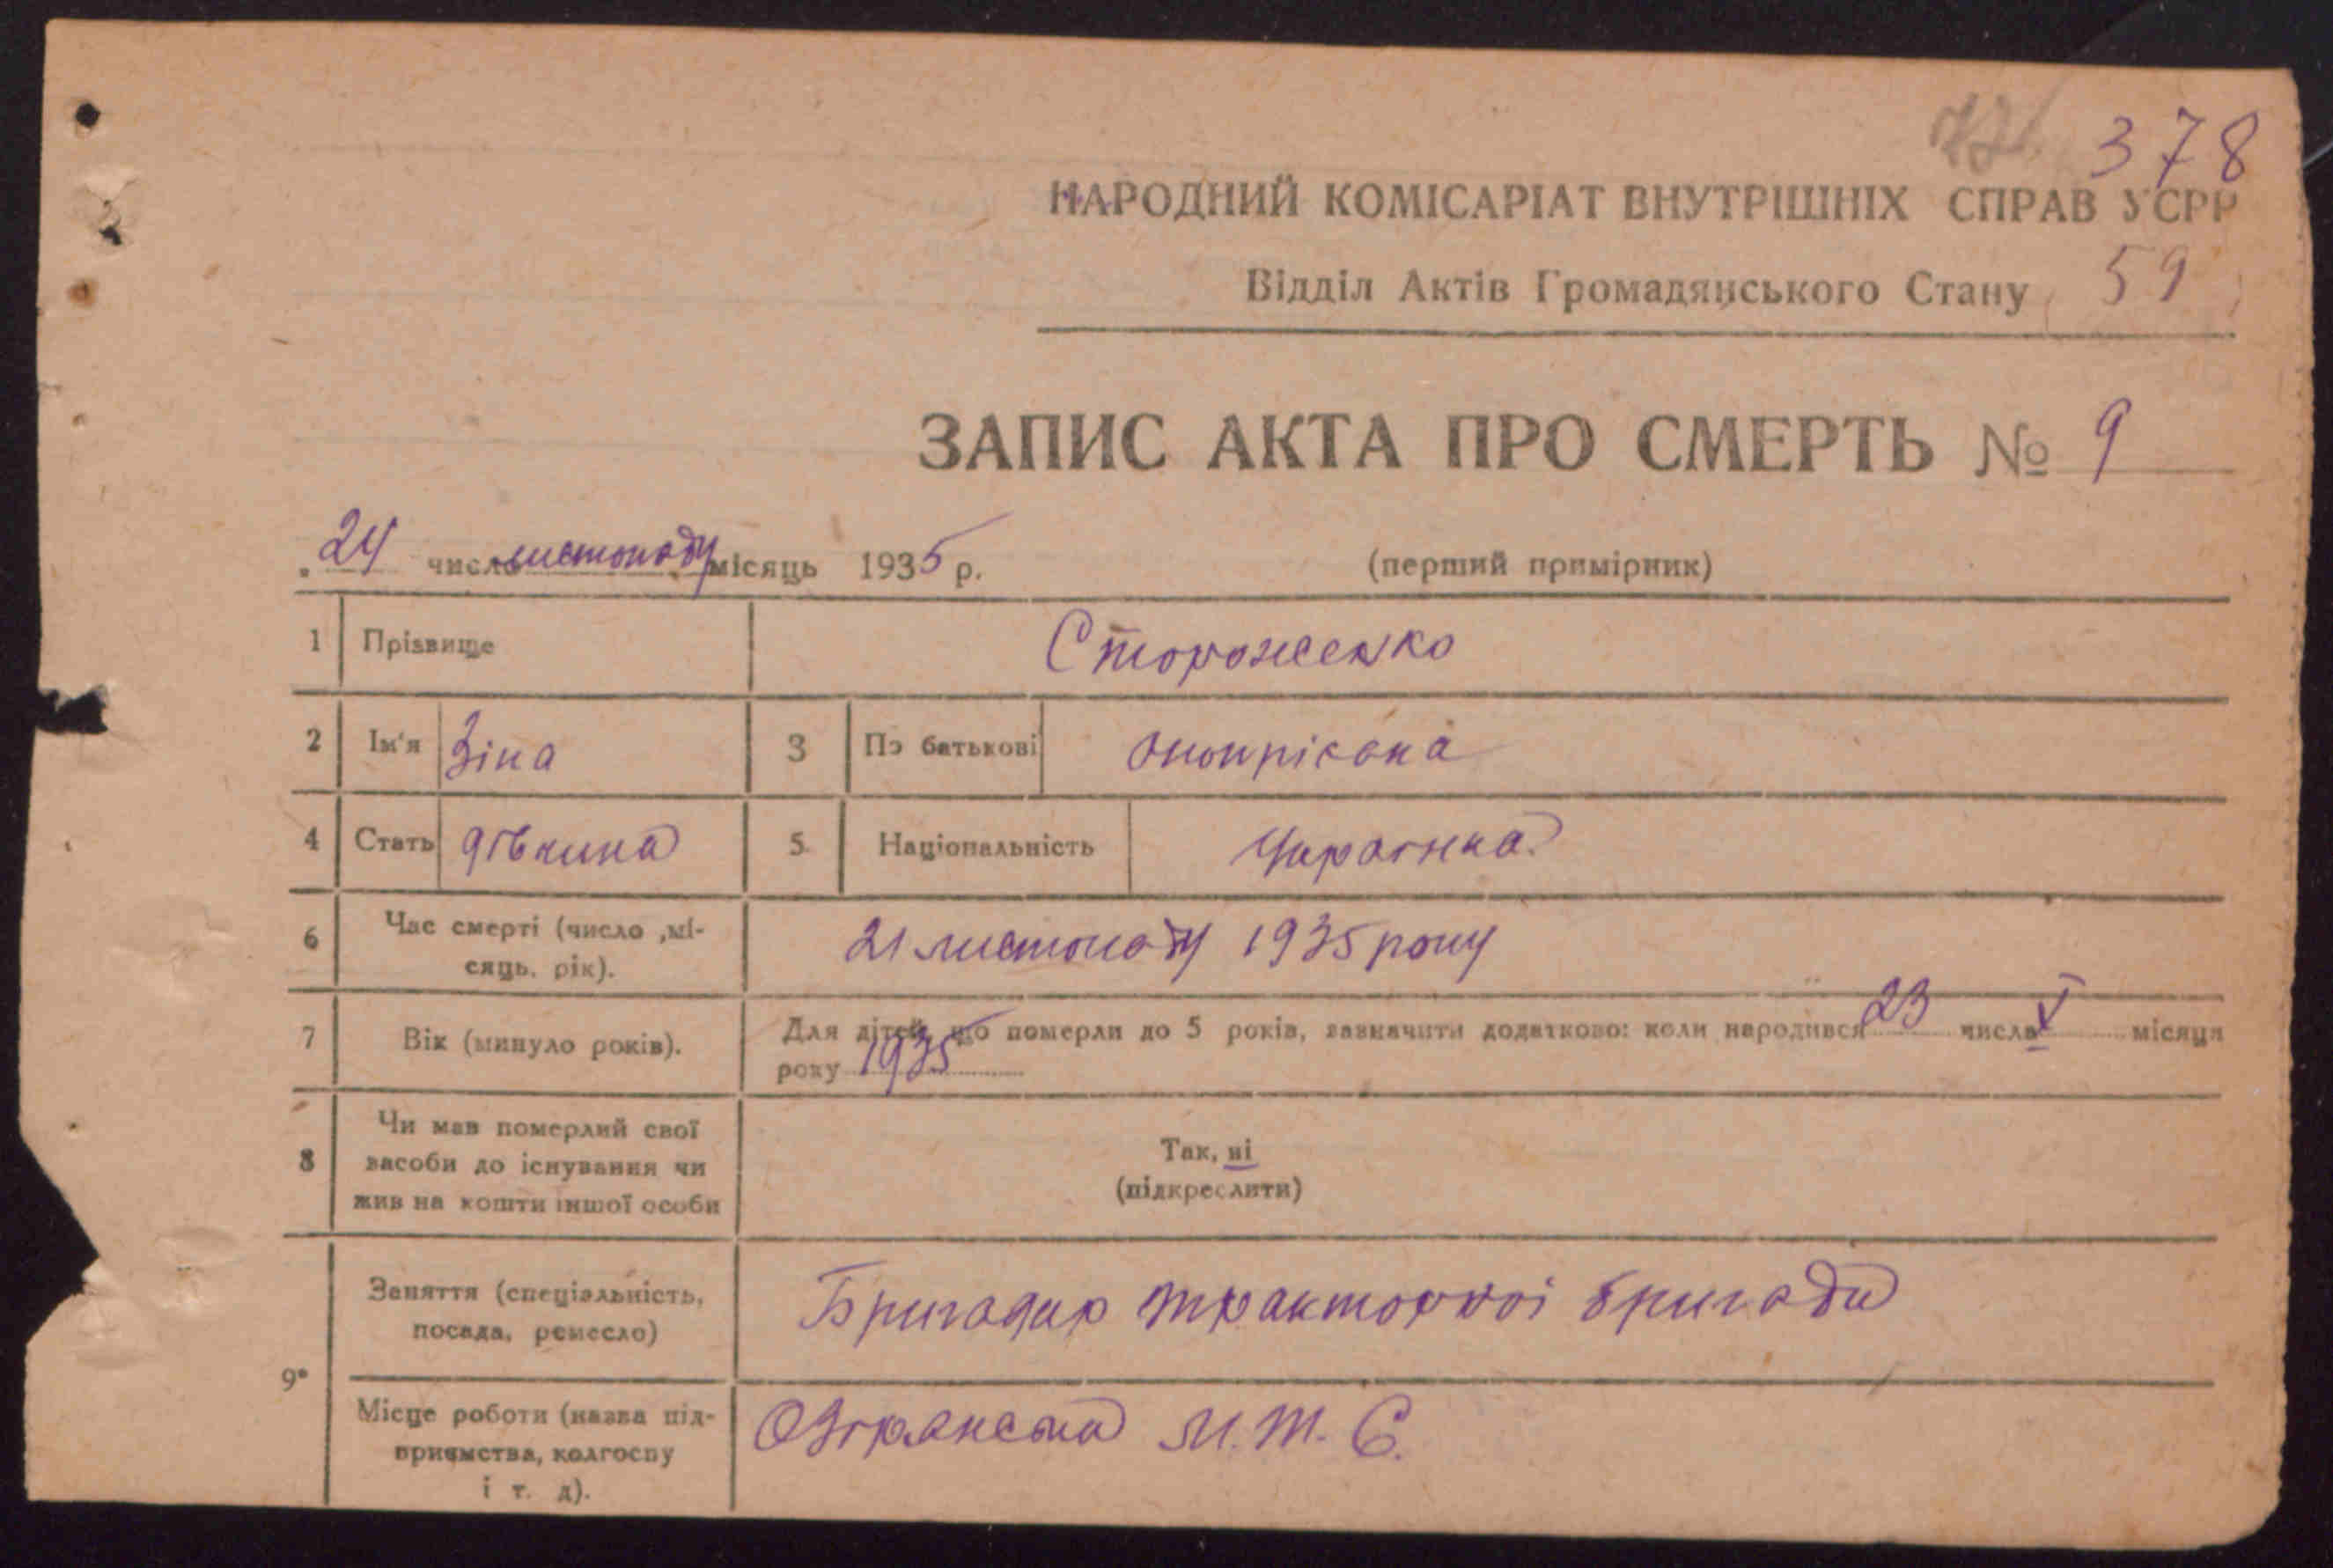 378
НАРОДНИЙ КОМІСАРІАТ ВНУТРІШНІХ СПРАВ УСРР
Відділ Актів Громадянського Стану 59
ЗАПИС АКТА ПРО СМЕРТЬ № 9
24 число листопаду місяць 1935 р. (перший примірник)
1 Прізвище Стороженко
2 Ім'я Зіна 3 По батькові
4 Стать дівчина 5 Національність Українка
6 Час смерті (число ,мі-
сяць, рік). 21 листопаду 1935 року
7 Вік (минуло років). Для дітей, що померли до 5 років, зазначити додатково: коли народився 23 числа V місяця
року 1935
8 Чи мав померлий свої
засоби до існування чи
жив на кошти іншої особи
Так, ні
(підкреслити)
9 Заняття (спеціальність,
посада, ремесло)
Бригадир тракторної бригади
Місце роботи (назва під-
приємства, колгоспу
і т. д).
М.Т.С.